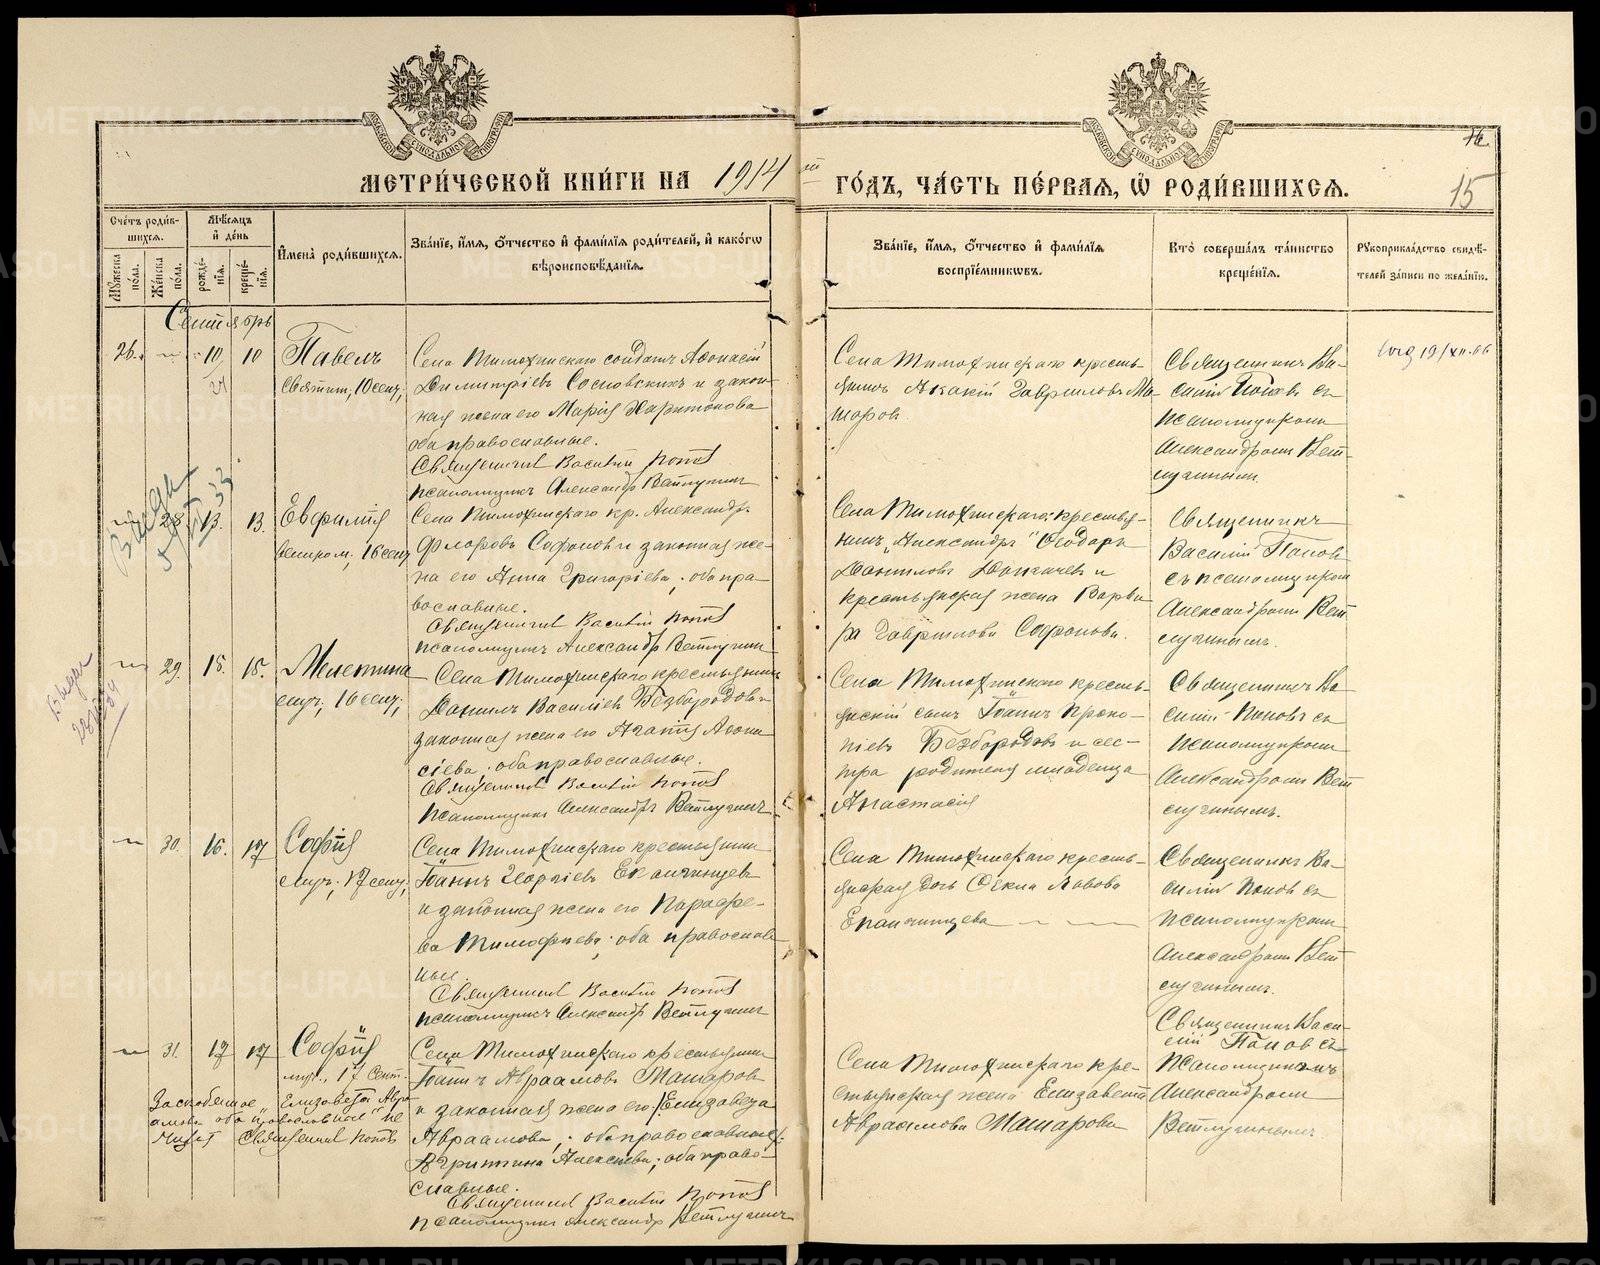 МЕТРИ́ЧЕСКОЙ КНИ́ГИ НА 1914 ГО́ДЪ, ЧА́СТЬ ПЕ́РВАЯ, Ѡ РОДИ́ВШИХСЯ.
15
Сче́тъ роди́в-
шихся.
Му́жеска по́ла.
Же́нска по́ла.
Мѣ́сяцъ
и де́нь
рожде́-
нія.
креще́-
нія.
Имена̀ роди́вшихся.
Зва́нїе, и́мя, ѻ́тчество и фами́лїя роди́телей, и како́гѡ
вѣроисповѣ́данїя.
Зва́нїе, и́мя, ѻ́тчество и фами́лїя
воспрїе́мникѡвъ.
Кто̀ соверша́лъ та́инство
креще́нїя.
Рꙋкоприкла́дство свидѣ́-
телей за́писи по жела́нїю.
Сентябрь
26. 10 10 Павелъ
Святит, 10 сент;
Села Тимохинскаго солдатъ Аѳонасій
Димитріевъ Сосновскихъ и закон-
ная жена его Марія Харитонова
оба православные.
Священникъ Василій Поповъ
псаломщикъ Александръ Ветлугинъ
Села Тимохинскаго кресть-
янинъ Акакій Гавриловъ Ма-
шаров
Священникъ Ва-
силій Поповъ съ
псаломщикомъ
Александромъ Вет-
лугинымъ.
28 13. 13. Евфимія
великом, 16 сент
Села Тимохинскаго кр. Александръ
Флоровъ Софоновъ и законная же-
на его Анна Григоріева; оба пра-
вославные.
Священникъ Василій Поповъ
псаломщикъ Александръ Ветлугинъ
Села Тимохинскаго кресть-
нинъ „Александръ“ Ѳеодоръ
Даниловъ
крестьянская жена Варва-
ра Гаврилова Софонова.
Священникъ
Василій Поповъ
съ псаломщикомъ
Александромъ Вет
лугинымъ.
29. 15. 15. Мелетина
муч, 16 сент;
Села Тимохинскаго крестьянинъ
Даниилъ Василіевъ Безбородовъ и
законная жена его Агаѳія Аѳона
сіева; оба православные.
Священникъ Василій Поповъ
псаломщикъ Александръ Ветлугинъ
Села Тимохинскаго кресть-
янскій сынъ Іоаннъ Проко-
піевъ Безбородовъ и сес-
тра родителя младенца
Анастасія
Священникъ Ва
силій Поповъ съ
псаломщикомъ
Александромъ Вет
лугинымъ.
30. 16. 17 Софія
муч; 17 сент;
Села Тимохинскаго крестьянинъ
Іоаннъ Георгіевъ Епанчинцевъ
и законная жена его Параске-
ва Тимофеева; оба православ
ные.
Священникъ Василій Поповъ
псаломщикъ Александръ Ветлугинъ
Села Тимохинскаго кресть-
янская дочь Ѳекла Львова
Епанчинцева
Священникъ Ва-
силій Поповъ съ
псаломщикомъ
Александромъ Вет
лугинымъ.
31. 17 17 Софія
муч., 17 сент.
Заскобленое „Елизовета Авра-
амова оба православные“ не
читать Священникъ Поповъ
Села Тимохинскаго крестьянинъ
Іоаннъ Авраамовъ Машаровъ
и законная жена его (Елизавета
Авраамова; оба православные);
Агриппина Алексіева; оба право-
славные.
Священникъ Василій Поповъ
псаломщикъ Александръ Ветлугинъ
Села Тимохинскаго кре-
стьянская жена Елизавета
Авраамова Машарова
Священникъ Васи-
лій Поповъ съ
псаломщикомъ
Александромъ
Ветлугинымъ.
METRIKI.GASO-URAL.RU